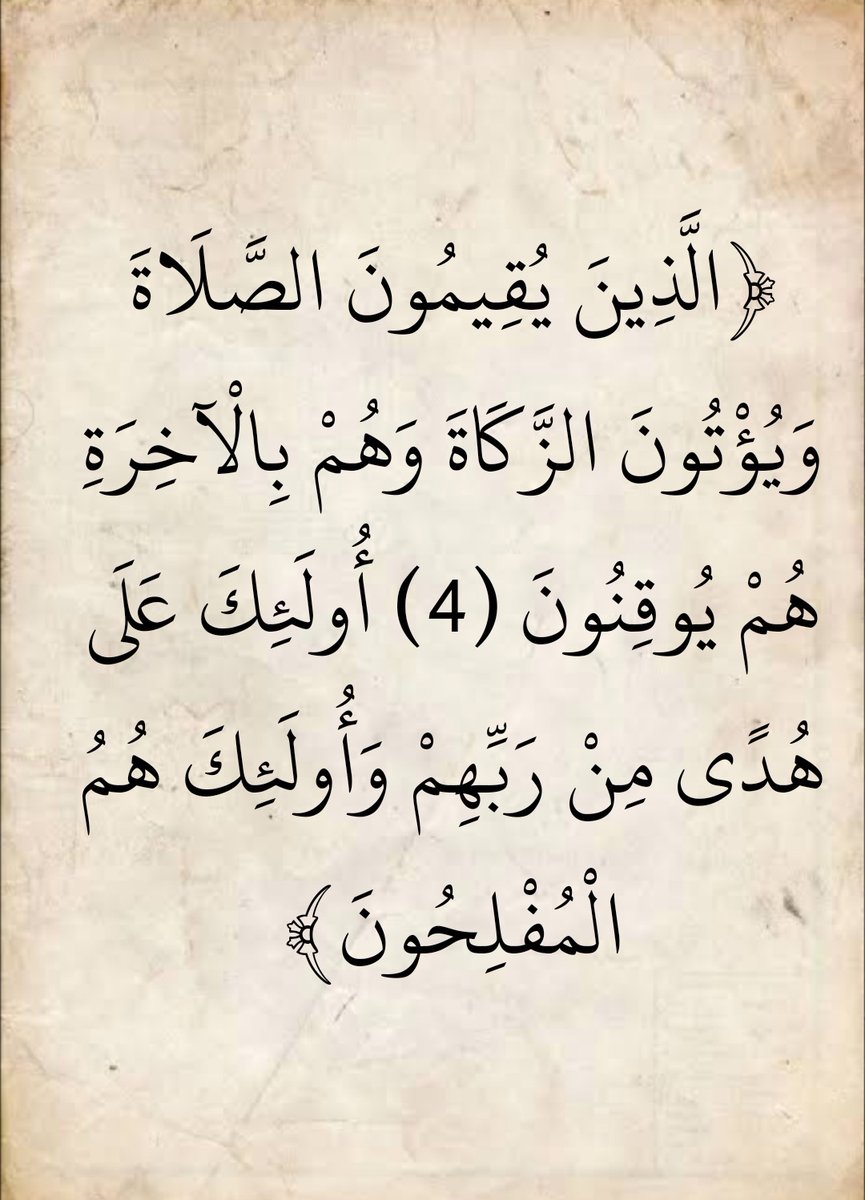 ﴿الَّذِينَ يُقِيمُونَ الصَّلَاةَ
وَيُؤْتُونَ الزَّكَاةَ وَهُمْ بِالْآخِرَةِ
هُمْ يُوقِنُونَ (4) أُولَئِكَ عَلَى
هُدًى مِنْ رَبِّهِمْ وَأُولَئِكَ هُمُ
الْمُفْلِحُونَ﴾